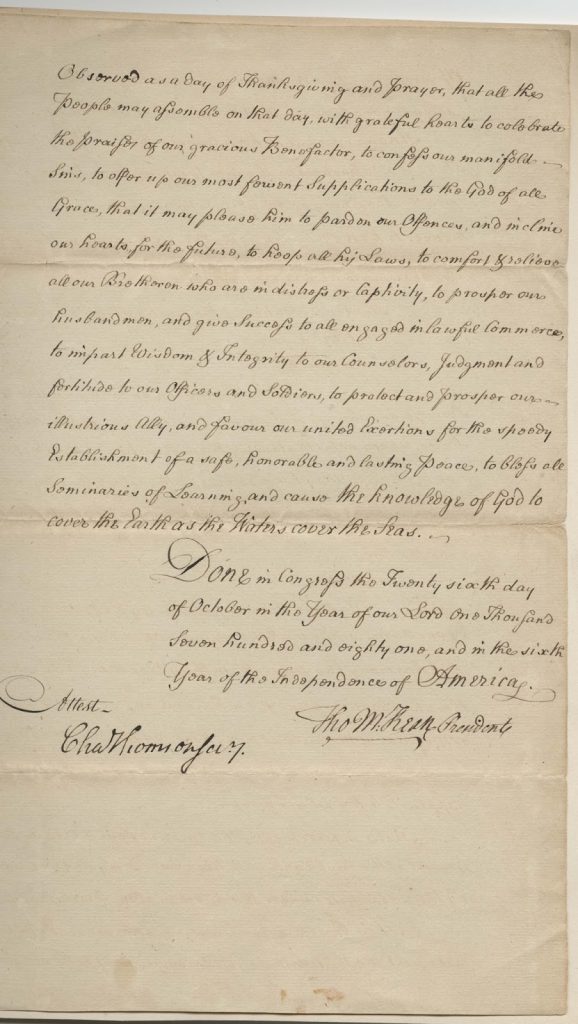 Observed as a day of Thanksgiving and Prayer, that all the
People may assemble on that day, with grateful hearts to celebrate
the Praises of our gracious Benefactor, to confess our manifold
Sins, to offer up our most fervent Supplications to the God of all
Grace, that it may please him to pardon our Offences, and incline
our hearts, for the future, to keep all his Laws, to comfort & relieve
all our Bretheren who are in distress or Captivity, to prosper our
husbandmen, and give Success to all engaged in lawful Commerce,
to impart Wisdom & Integrity to our Counselors, Judgment and
fortitude to our Officers and Soldiers, to protect and prosper our
illustrious Ally, and favour our united Exertions for the speedy
Establishment of a safe, honorable and lasting Peace, to bless all
Seminaries of Learning, and cause the knowledge of God to
cover the Earth as the Waters cover the Seas.
Done in Congress the Twenty sixth day
of October in the Year of our Lord One Thousand
Seven hundred and eighty one, and in the sixth
Year of the Independence of America.
Attest
Tho M:Kean President
Cha Thomson Secy.